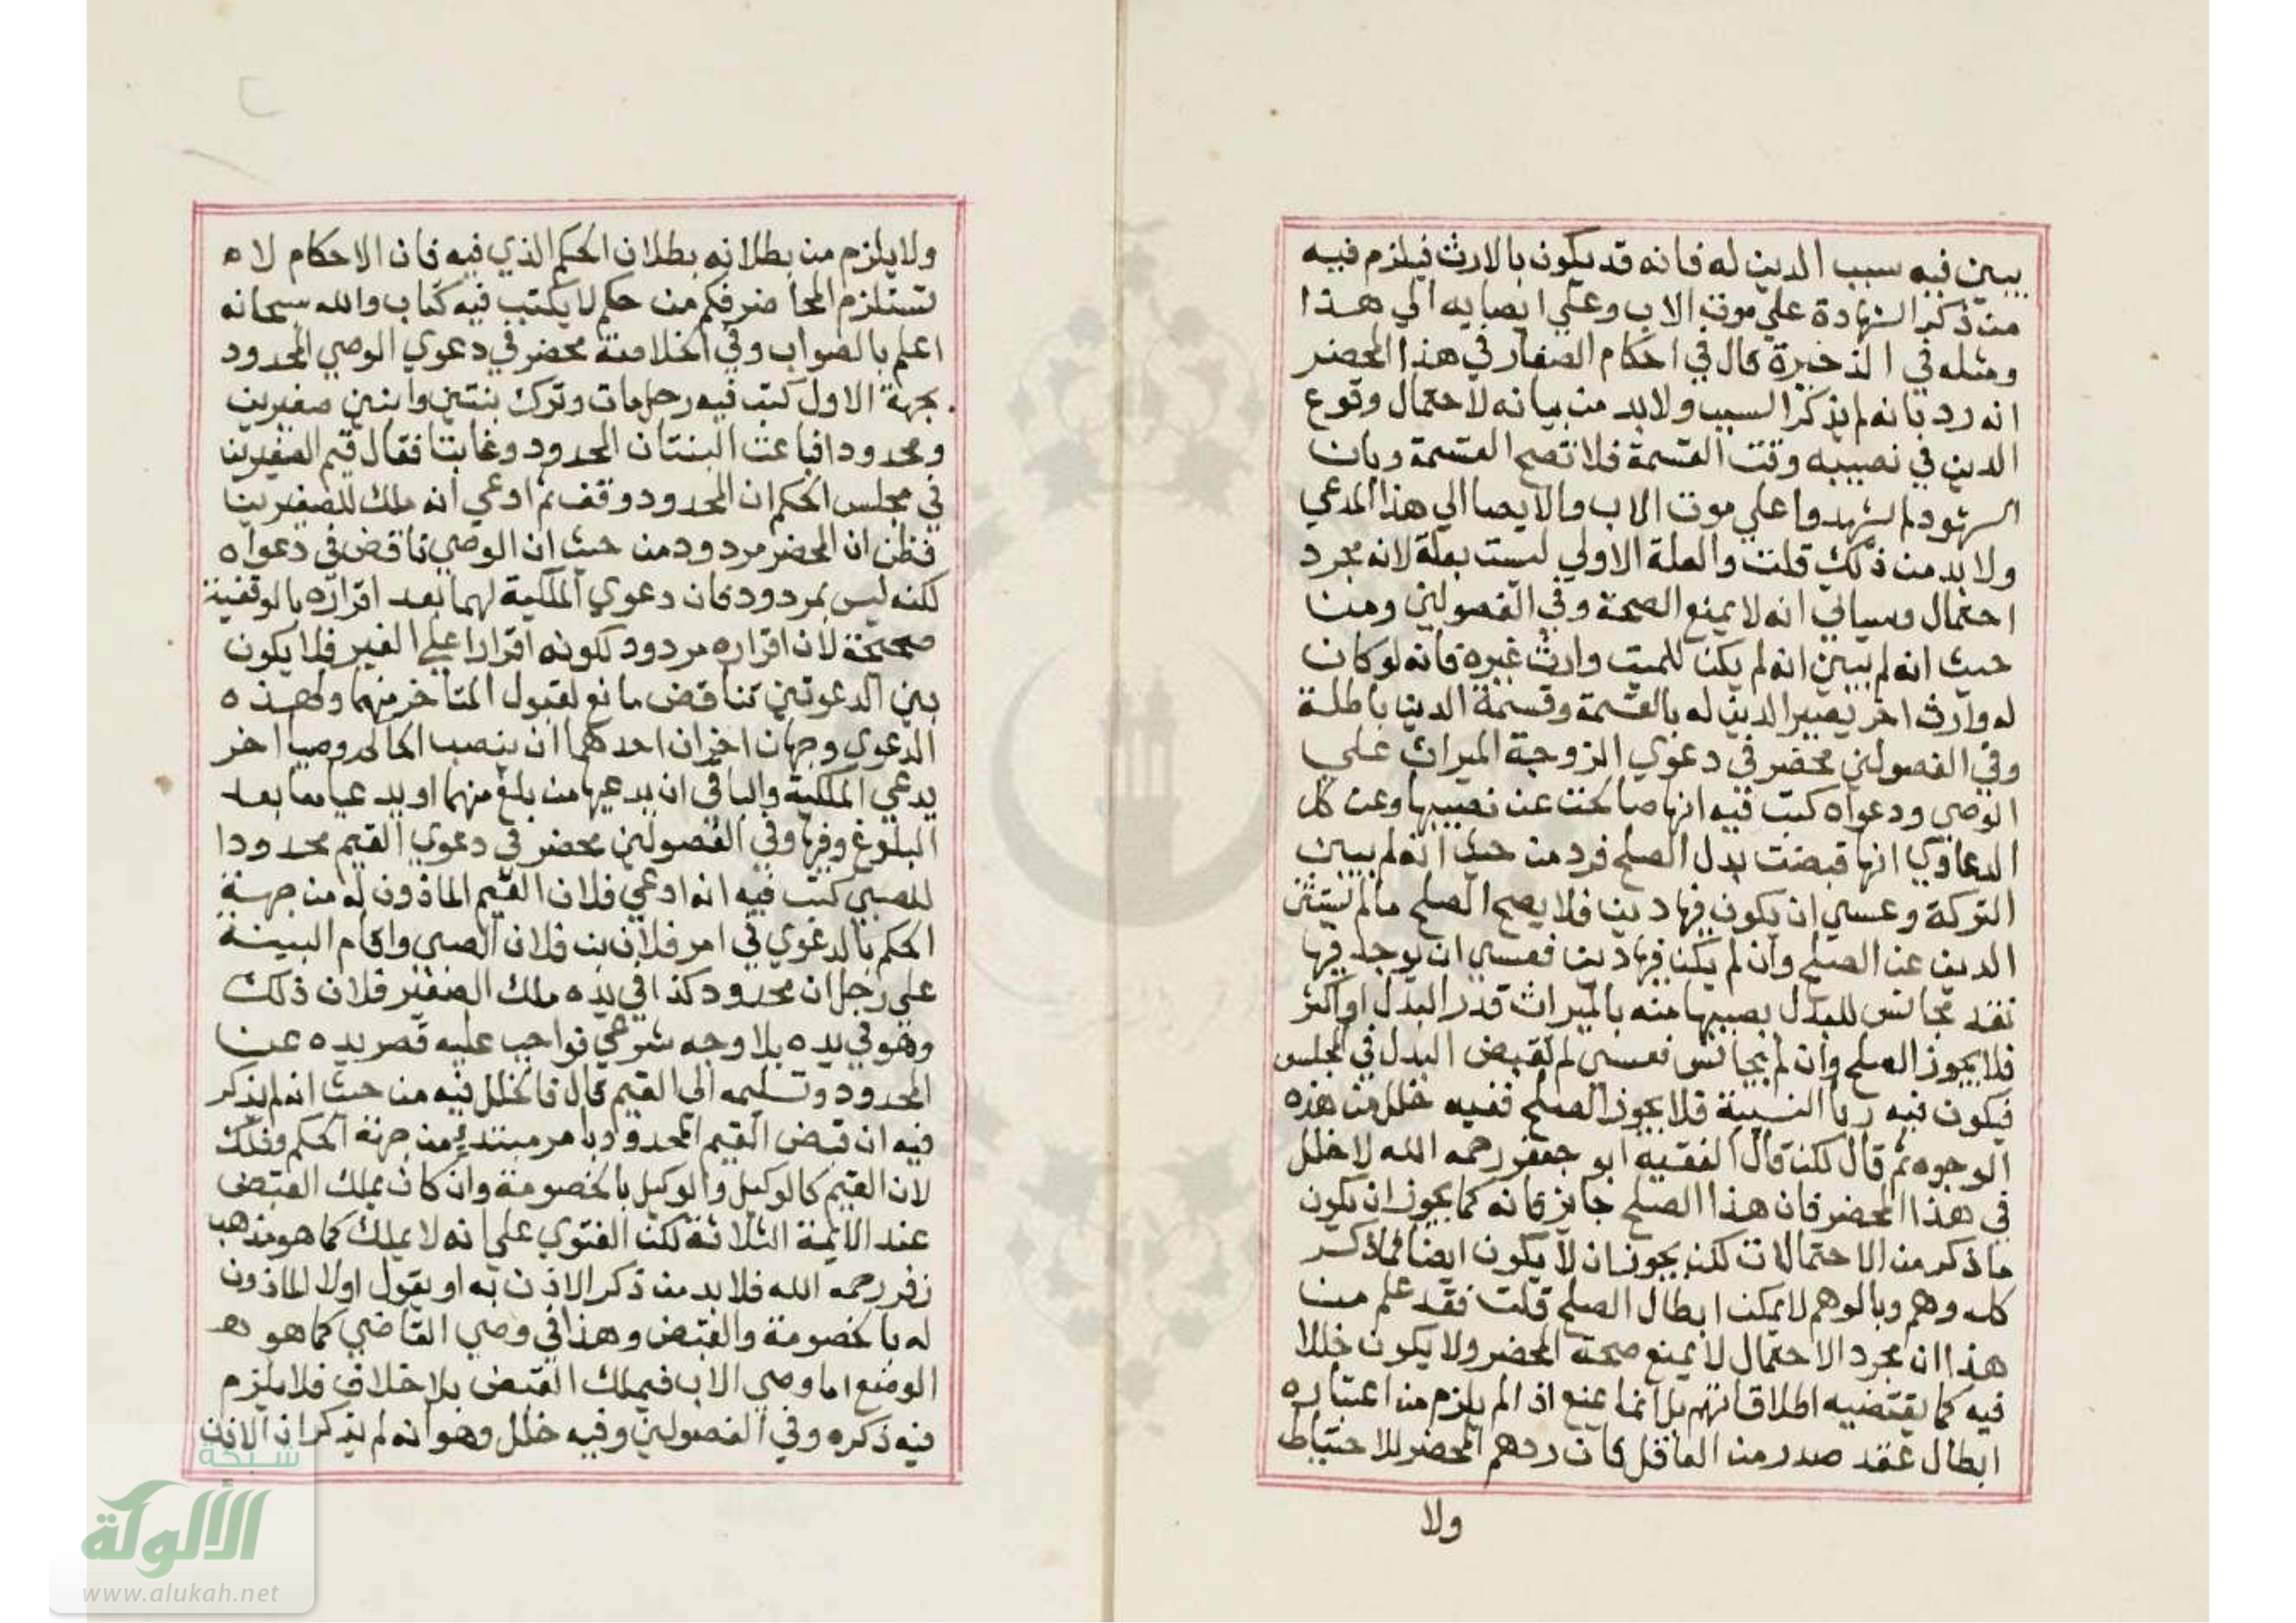 يبين فيه سبب الدين له فانه قد يكون بالارث فيلزم فيه
من ذكر الشهادة علي موت الاب وعلي ايصايه الي هذا
ومثله في الذخيرة قال في احكام الصغار في هذا المحضر
انه رد بانه لم يذكر السبب ولا بد من بيانه لاحتمال وقوع
الدين في نصيبه وقت القسمة فلا تصح القسمة وبان
الشهود لم يشهدوا علي موت الاب والايصا الي هذا المدعي
ولا بد من ذلك قلت والعلة الاولي ليست بعلة لانه مجرد
احتمال وسياتي انه لا يمنع الصحة وفي الفصولين ومن
حيث انه لم يبين انه لم يكن للميت وارث غيره فانه لو كان
له وارث اخر يصير الدين له بالقسمة وقسمة الدين باطلة
وفي الفصولين محضر في دعوي الزوجة الميراث علي
الوصي ودعواه كتب فيه انها صالحت عن نصيبها وعن كل
الدعاوي انها قبضت بدل الصلح فرد من حيث انه لم يبين
التركة وعسي ان يكون فيها دين فلا يصح الصلح مالم يستثن
الدين عن الصلح وان لم يكن فيها دين فعسي ان يوجد فيها
نقد مجانس للبدل يصيبها منه بالميراث قدر البدل او اكثر
فلا يجوز الصلح وان لم يجانس فعسي لم تقبض البدل في المجلس
فيكون فيه ربا النسيئة فلا يجوز الصلح ففيه خلل من هذه
الوجوه ثم قال لكن قال الفقيه ابو جعفر رحمه الله لا خلل
في هذا المحضر فان هذا الصلح جايز فانه كما يجوز ان يكون
ما ذكر من الاحتمالات لكن يجوز ان لا يكون ايضا فما ذكر
كله وهم وبالوهم لا يمكن ابطال الصلح قلت فقد علم من
هذا ان مجرد الاحتمال لا يمنع صحة المحضر ولا يكون خللا
فيه كما يقتضيه اطلاقاتهم بل انما يمنع اذا لم يلزم من اعتباره
ابطال عقد صدر من العاقل فان ردهم المحضر للاحتياط
ولا
ولا يلزم من بطلانه بطلان الحكم الذي فيه فان الاحكام لا ه
تستلزم المحاضر فكم من حكم لا يكتب فيه كتاب والله سبحانه
اعلم بالصواب وفي الخلاصة محضر في دعوي الوصي المحدود
بجهة الاول كتب فيه رجل مات وترك بنتين وابنين صغيرين
ومحدودا فباعت البنتان المحدود وغابتا فقال قيم الصغيرين
في مجلس الحكم ان المحدود وقف ثم ادعي انه ملك للصغيرين
فظن ان المحضر مردود من حيث ان الوصي ناقض في دعواه
لكنه ليس بمردود فان دعوي الملكية لهما بعد اقراره بالوقفية
صحيحة لان اقراره مردود لكونه اقرارا علي الغير فلا يكون
بين الدعوتين تناقض مانع لقبول المتاخر منهما ولهذه
الدعوي وجهان اخران احدهما ان ينصب الحاكم وصيا اخر
يدعي الملكية والباقي ان يدعيها من بلغ منهما او يدعياها بعد
البلوغ وفيها وفي الفصولين محضر في دعوي القيم محدودا
للصبي كتب فيه انه ادعي فلان القيم الماذون له من جهة
الحكم بالدعوي في امر فلان بن فلان الصبي واقام البينة
علي رجل ان محدود كذا في يده ملك الصغير فلان ذلك
وهو في يده بلا وجه شرعي فواجب عليه قصر يده عن
المحدود وتسليمه الي القيم قال فالخلل فيه من حيث انه لم يذكر
فيه ان قبض القيم المحدود بامر مبتدئ من جهة الحكم وذلك
لان القيم كالوكيل والوكيل بالخصومة وان كان يملك القبض
عند الايمة الثلاثة لكن الفتوي علي انه لا يملك كما هو مذهب
زفر رحمه الله فلا بد من ذكر الاذن به او يقول اولا الماذون
له بالخصومة والقبض وهذا في وصي القاضي كما هو هـ
الوضع اما وصي الاب فيملك القبض بلا خلاف فلا يلزم
فيه ذكره وفي الفصولين وفيه خلل وهو انه لم يذكر ان الاذن
شبكة
الألوكة
www.alukah.net